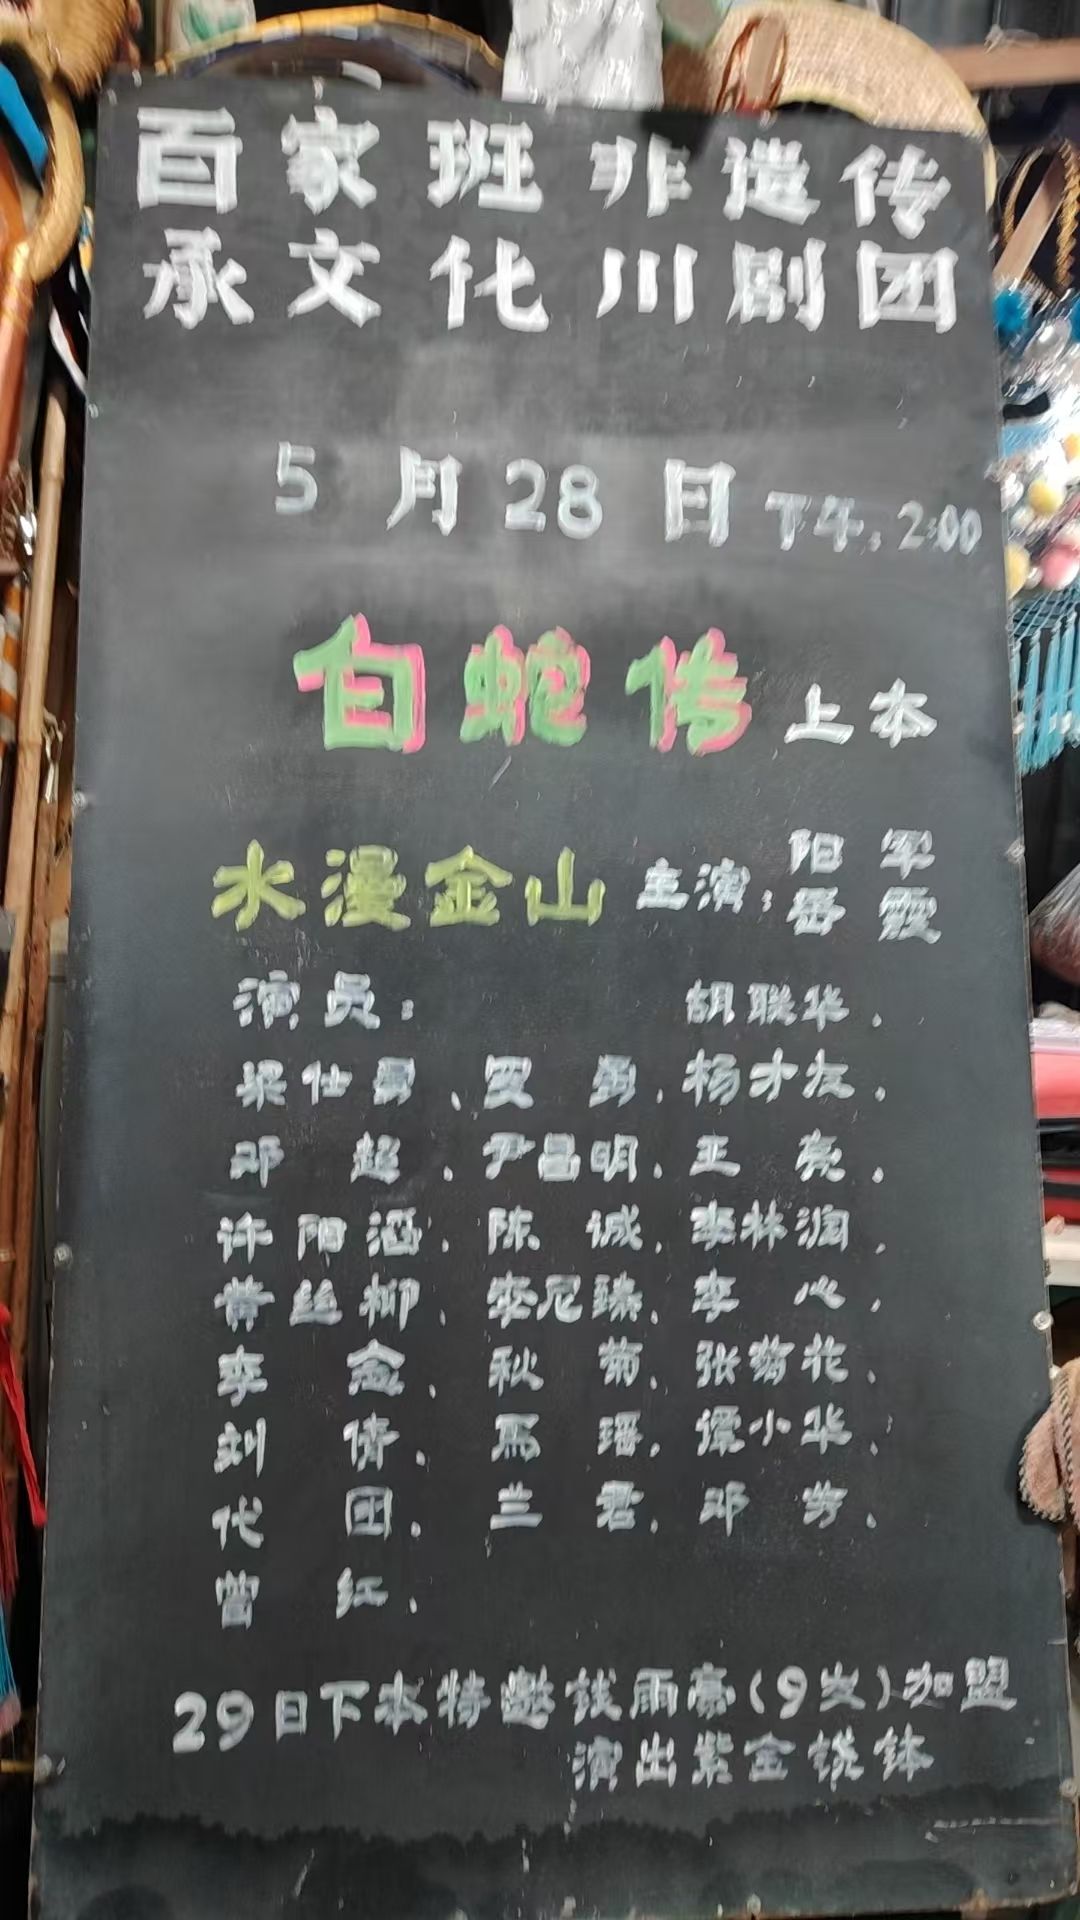 百家班非遗传
承文化川剧团
5月28日下午:2:00
白蛇传上本
水漫金山 主演:阳军
岳霞
演员: 胡联华、
梁仕勇、罗勇、杨才友、
邓超、尹昌明、王亮、
许阳涵、陈诚、李林润、
黄丝柳、李尼臻、李心、
李念、秋菊、张菊花、
刘倩、馬璠、谭小华、
代团、兰君、邓芳、
曾红、
29日下本特邀钱雨豪(9岁)加盟
演出紫金铙钵